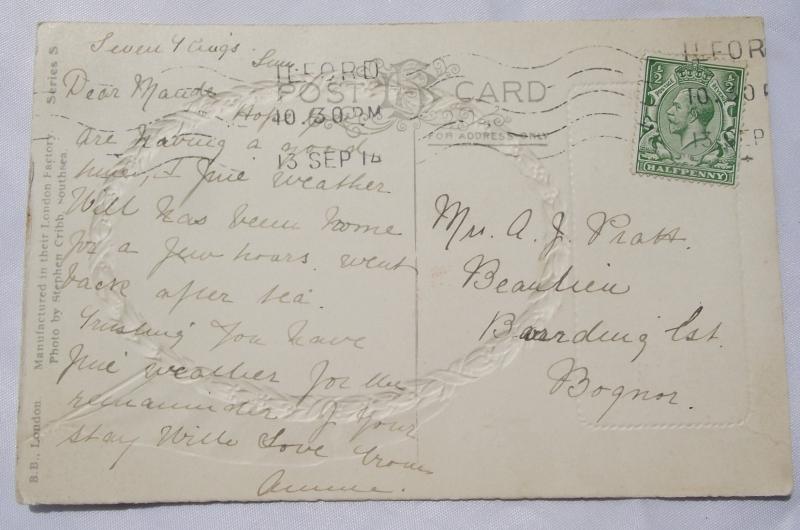 Seven Kings
ILFORD
10.30 PM
13 SEP 14
POST B CARD
FOR ADDRESS ONLY
Dear Maude
Hope you
are having a good
time, & fine weather
Will has been home
for a few hours. went
back after tea.
Trusting you have
fine weather for the
remainder of your
stay With Love from
Annie.
Mrs. A. J. Pratt.
Beaulieu
Boarding Est.
Bognor.
½ ½
HALFPENNY
ILFOR
10
13 SEP
B.B., London Manufactured in their London Factory. Series S.
Photo by Stephen Cribb, Southsea.